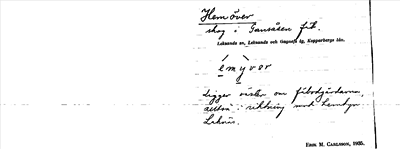 Hemöver
skog i Gansåsen fbt.
Leksands sn, Leksands och Gagnefs tlg, Kopparbergs län.
emyvər
Ligger väster om fäbodgårdarna,
alltså i riktning mot
Leksås.
ERIK M. CARLSSON, 1935.